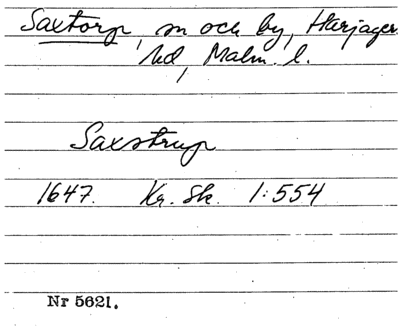 Saxtorp, sn och by, Harjager
hd, Malm. l.
Saxstrup
1647. Kr. Sk. 1:554
Nr 5621.